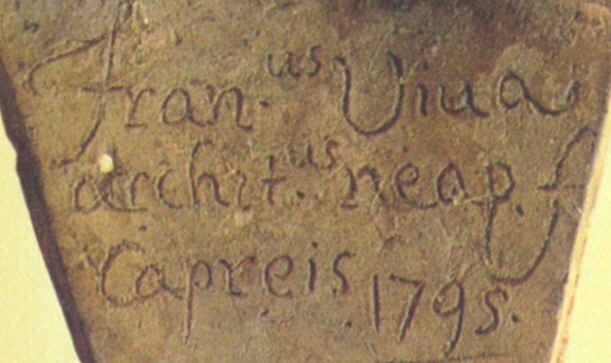 Fran.us Viva
archit.us neap. f
Capreis 1795.